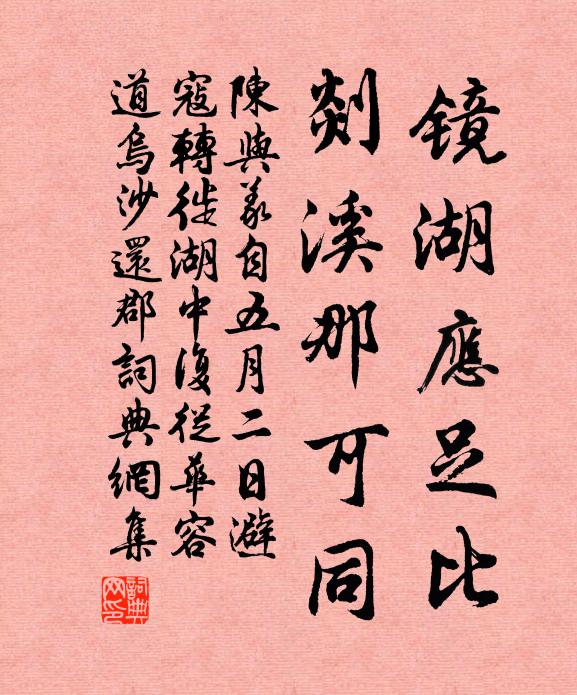 鏡湖應足比
剡溪那可同
陳與義自五月二日避
寇轉徙湖中復從華容
道烏沙還郡詞典網集
詞典
网印